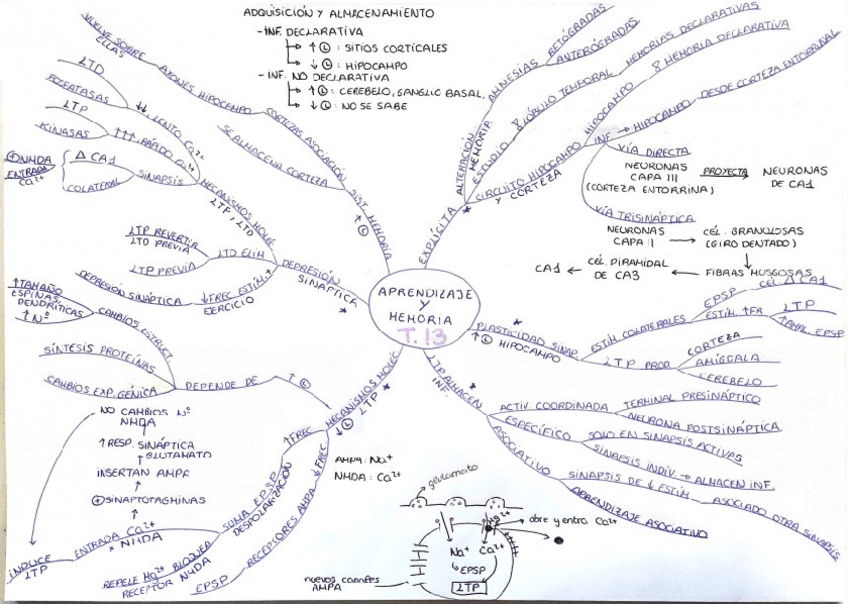 ADQUISICIÓN Y ALMACENAMIENTO
- INF. DECLARATIVA
↑ Ⓛ : SITIOS CORTICALES
↓ Ⓛ : HIPOCAMPO
- INF. NO DECLARATIVA
↑ Ⓛ : CEREBELO, GANGLIO BASAL,
↓ Ⓛ : NO SE SABE
APRENDIZAJE
Y
MEMORIA
T. 13
EXPLÍCITA
ALTERACIÓN
MEMORIA
AMNESIAS
RETÓGRADAS
ANTERÓGRADAS
ESTUDIO
LÓBULO TEMPORAL
MEMORIAS DECLARATIVAS
* CIRCUITO HIPOCAMPO
Y CORTEZA
HIPOCAMPO
MEMORIA DECLARATIVA
INF. → HIPOCAMPO
DESDE CORTEZA ENTORRINAL
VÍA DIRECTA
NEURONAS
CAPA III
(CORTEZA ENTORRINA)
PROYECTA
NEURONAS
DE CA1
VÍA TRISINÁPTICA
NEURONAS
CAPA II
CÉL. GRANULOSAS
(GIRO DENTADO)
FIBRAS MUSGOSAS
CÉL. PIRAMIDAL
DE CA3
CA1
* PLASTICIDAD SINAP.
↑ Ⓛ HIPOCAMPO
ESTIM. COLATERALES
EPSP
CÉL. Δ CA1
ESTIM. ↑ FR
LTP
↑ AMPL EPSP
LTP PROD.
CORTEZA
AMÍGDALA
CEREBELO
LTP ALMACEN *
INF.
ACTIV COORDINADA
TERMINAL PRESINÁPTICO
NEURONA POSTSINÁPTICA
ESPECÍFICO
SOLO EN SINAPSIS ACTIVAS
SINAPSIS INDIV → ALMACEN INF.
ASOCIATIVO
SINAPSIS DE ↓ ESTIM.
ASOCIADO OTRA SINAPSIS
APRENDIZAJE ASOCIATIVO
SIST. MEMORIA
↑ Ⓛ
CORTEZAS ASOCIACIÓN
AXONES HIPOCAMPO
VUELVE SOBRE
ELLAS
SE ALMACENA CORTEZA
DEPRESIÓN
SINÁPTICA *
MECANISMOS MOLEC
LTP, LTD
↓↓ LENTO Ca²⁺
LTD
FOSFATASAS
↑↑↑ RÁPIDO Ca²⁺
LTP
KINASAS
SINAPSIS
Δ CA1
COLATERAL
⊕ NMDA
ENTRADA
Ca²⁺
LTD ELIM
LTP REVERTIR
LTD PREVIA
LTP PREVIA
↓ FREC ESTIM x
EJERCICIO
DEPRESIÓN SINÁPTICA
MECANISMOS MOLEC
LTP *
↓ Ⓛ
↑ Ⓛ
DEPENDE DE
CAMBIOS ESTRUCT.
↑ TAMAÑO
ESPINAS
DENDRÍTICAS
↑ Nº
SÍNTESIS PROTEÍNAS
CAMBIOS EXP. GÉNICA
↑ FREC
SUMA EPSP
DESPOLARIZACIÓN
REPELE Mg²⁺ BLOQUEA
RECEPTOR NMDA
ENTRADA Ca²⁺
x NMDA
INDUCE
LTP
⊕ SINAPTOTAGMINAS
INSERTAN AMPA
↑ RESP. SINÁPTICA
GLUTAMATO
NO CAMBIOS Nº
NMDA
↓ FREC
RECEPTORES AMPA
EPSP
AMPA : Na⁺
NMDA : Ca²⁺
glutamato
Mg²⁺
abre y entra Ca²⁺
Na⁺
Ca²⁺
↳ EPSP
LTP
nuevos canales
AMPA